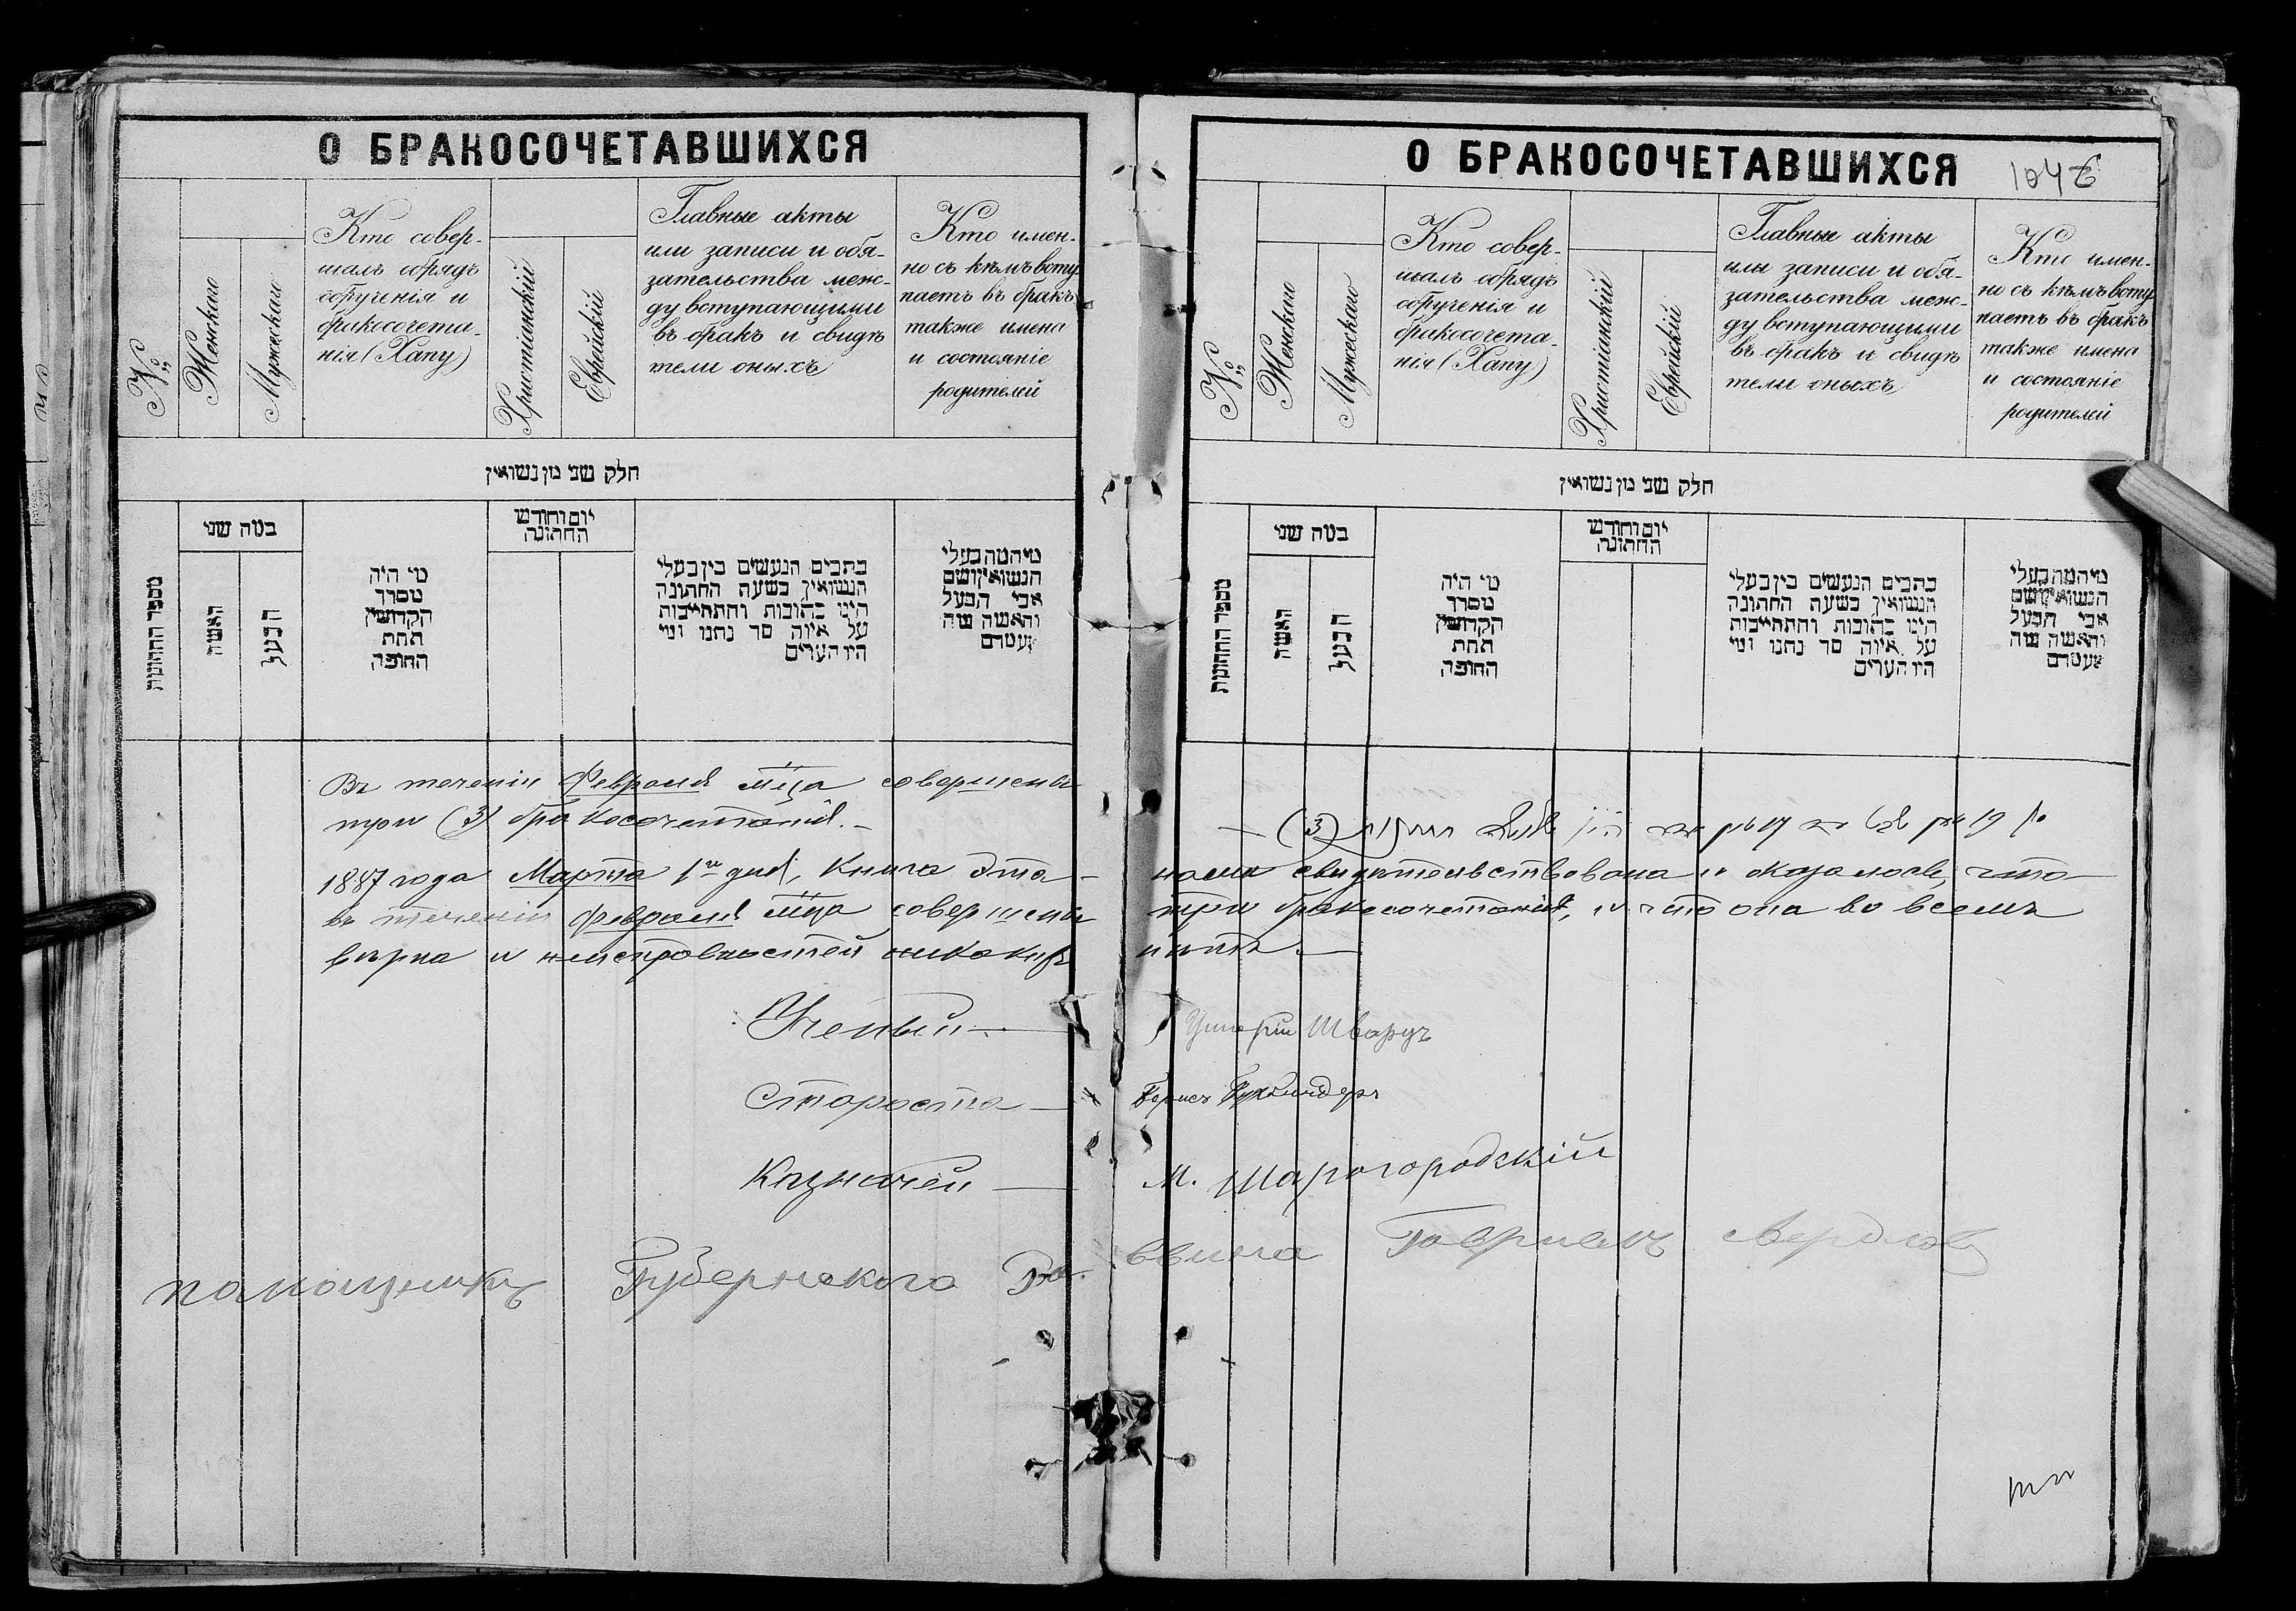 О БРАКОСОЧЕТАВШИХСЯ
№
Женская
Мужеская
Кто совер-
шалъ обрядъ
обрученія и
бракосочета-
нія (Хапу)
Христіанскій
Еврейскій
Главные акты
или записи и обя-
зательства меж-
ду вступающими
въ бракъ и свидѣ
тели оныхъ
Кто имен-
но съ кѣмъ всту
паетъ въ бракъ
также имена
и состояніе
родителей
חלק שני מן נשואין
מספר החתונות
במה שני
האשה
הבעל
מי היה
מסדר
הקדושין
תחת
החופה
יום וחודש
החתונה
כתבים הנעשים בין בעלי
הנשואין בשעת החתונה
היינו כתובות והתחייבות
על איזה סך נתנו ומי
היו העדים
מי המה בעלי
הנשואין ושם
אבי הבעל
והאשה ומה
מעמדם
Въ теченіи Февраля мѣца совершены
три (3) бракосочетанія. —
1887 года Марта 1го дня, Книга эта —
въ теченіи Февраля мѣца совершены
вѣрна и неисправностей никакихъ
Ученый —
Староста —
Казначей —
помощникъ Губернского Ра
О БРАКОСОЧЕТАВШИХСЯ
104
№
Женская
Мужеская
Кто совер-
шалъ обрядъ
обрученія и
бракосочета-
нія (Хапу)
Христіанскій
Еврейскій
Главные акты
или записи и обя-
зательства меж-
ду вступающими
въ бракъ и свидѣ
тели оныхъ
Кто имен-
но съ кѣмъ всту
паетъ въ бракъ
также имена
и состояніе
родителей
חלק שני מן נשואין
מספר החתונות
במה שני
האשה
הבעל
מי היה
מסדר
הקדושין
תחת
החופה
יום וחודש
החתונה
כתבים הנעשים בין בעלי
הנשואין בשעת החתונה
היינו כתובות והתחייבות
על איזה סך נתנו ומי
היו העדים
מי המה בעלי
הנשואין ושם
אבי הבעל
והאשה ומה
מעמדם
(3)
нами свидѣтельствована и оказалось, что —
три бракосочетанія, и что она во всемъ
нѣтъ. —
Шварцъ
Борисъ Букбиндеръ
М. Шарогородскій
ввина Гавриилъ Свердловъ